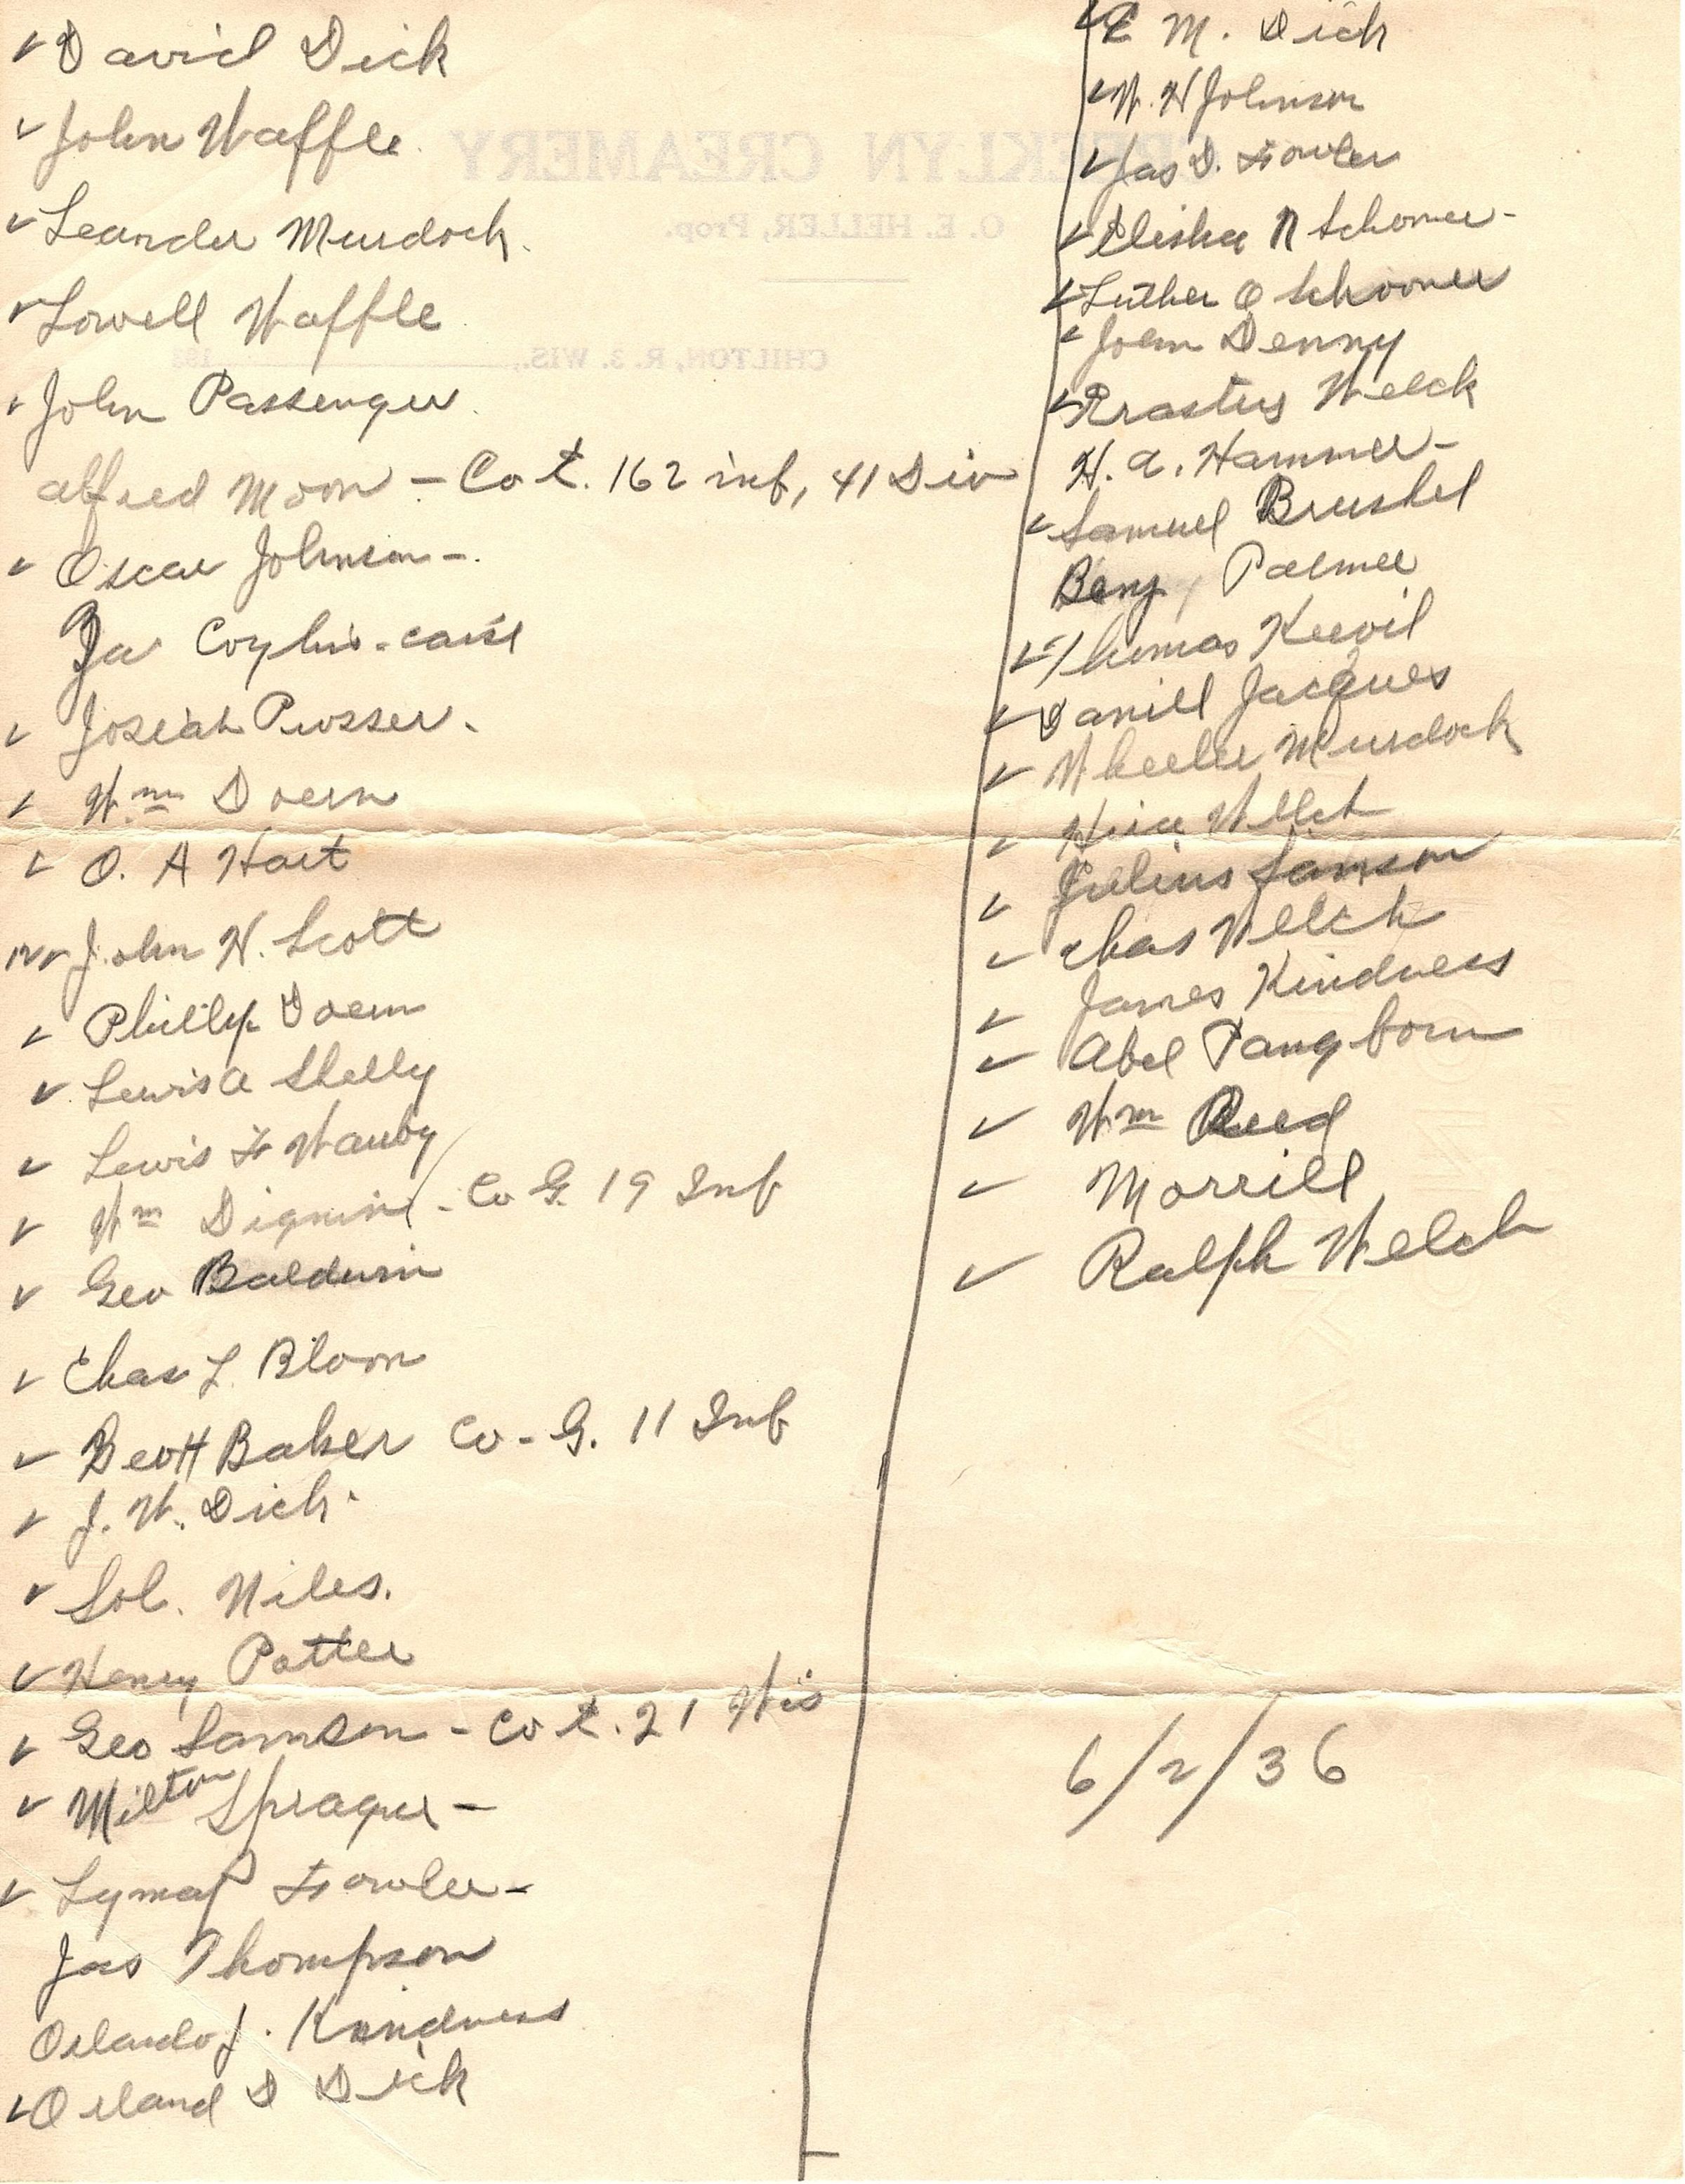 David Dick
John Waffle
Leander Murdock
Lowell Waffle
John Passenger
Alfred Moon - Co E. 162 inf, 41 Div
Oscar Johnson -
Josiah Prosser
Wm Doern
O. A Hart
John H. Scott
Phillip Doern
Lewis A Shelly
Lewis F Wauby
Wm - Co G. 19 Inf
Geo Baldwin
Chas L. Bloon
Baker Co - G. 11 Inf
J. W. Dick
Sol. Niles.
Henry Potter
Geo Samson - Co E. 21 Wis
Milton Sprague -
Lyman Fowler -
Jas Thompson
Orlando J. Kindness
Orland D Dick
E M. Dick
W. H Johnson
Jas D. Fowler
Elisha R Schooner
Luther O Schooner
John Denny
Erastus Welch
H. A. Hammer
Samuel Brushel
Benj Palmer
Thomas Keevil
Daniel Jacques
Wheeler Murdock
Welch
Julius Samson
Chas Welch
James Kindness
Abel Pangborn
Wm Reed
Morrill
Ralph Welch
6/2/36
CREAMERY
O. E. HELLER, Prop.
CHILTON, R. 3. WIS., 193